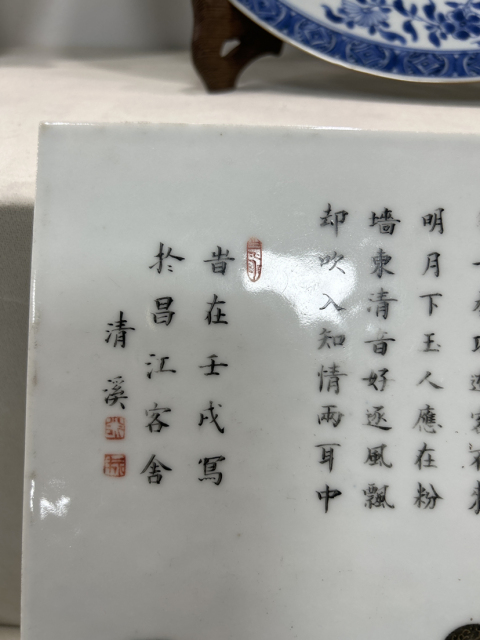 明月下玉人應在粉
墻東清音好逐風飄
却吹入知情兩耳中
旹在壬戌寫
於昌江客舍
清溪